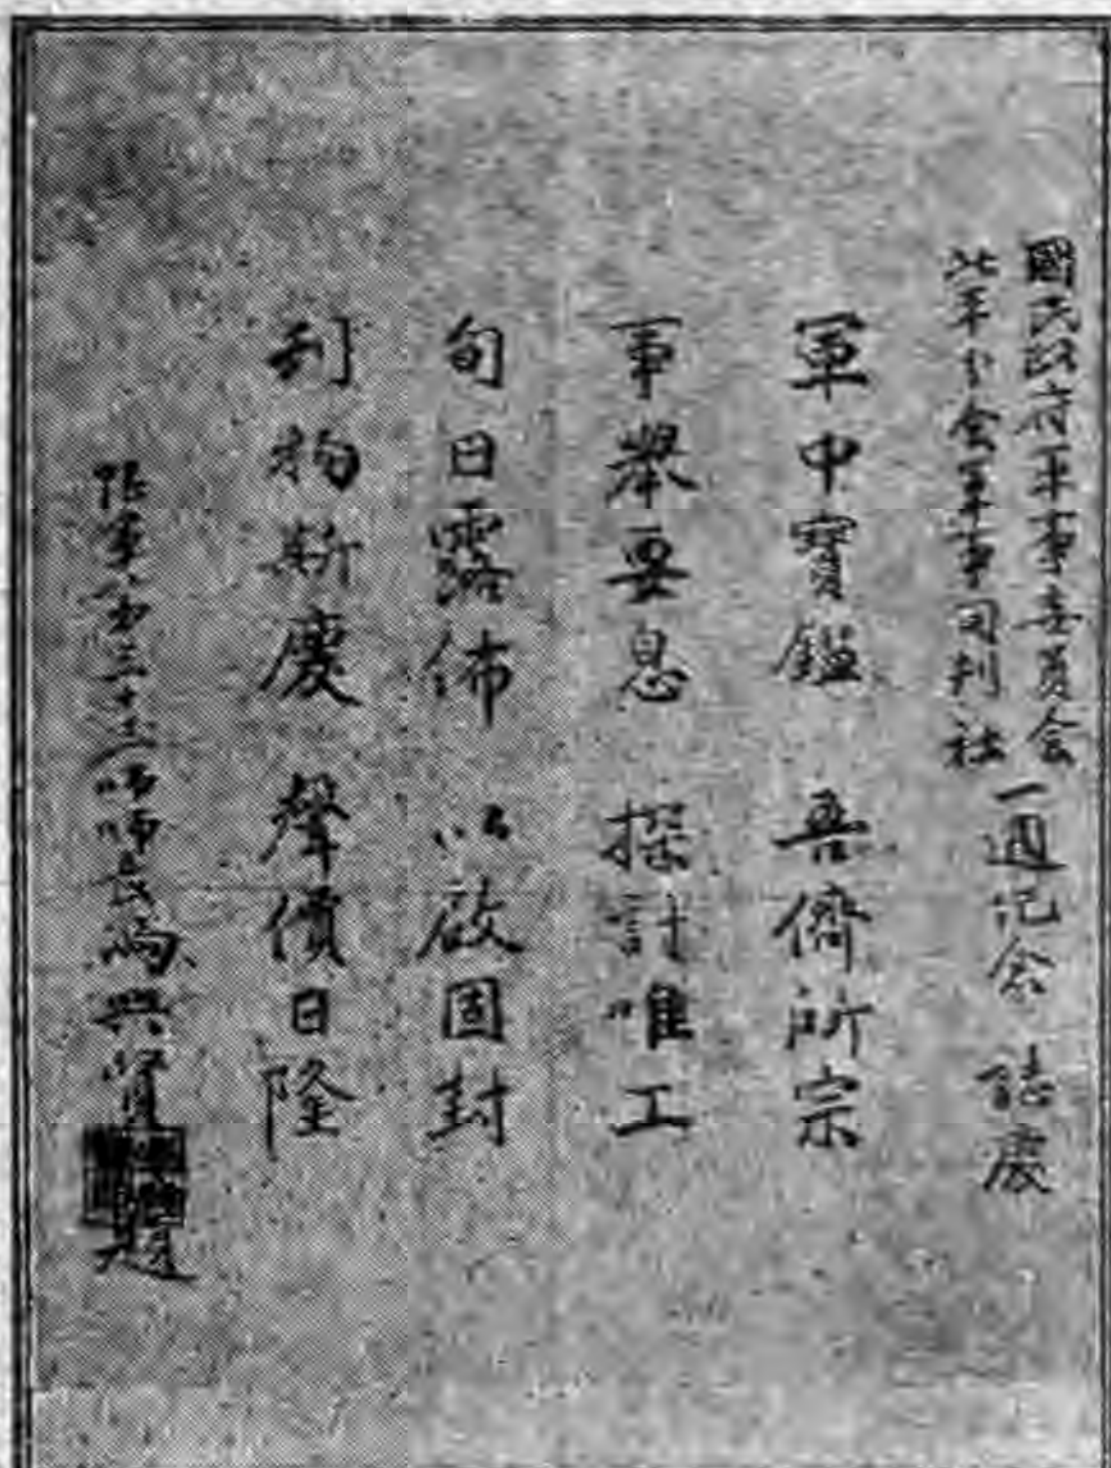 國民政府軍事委員會
北平分會軍事旬刊社
一週記念 誌慶
軍中寶鑑 吾儕所宗
事舉要息 探討唯工
旬日露佈 以啟固封
刊物斯慶 聲價日隆
陸軍第三十六師師長馮興賢題